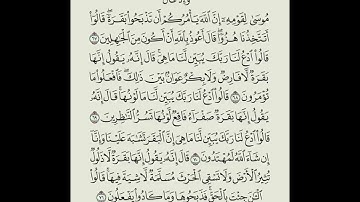 وَإِذْ قَالَ
مُوسَىٰ لِقَوْمِهِۦٓ إِنَّ ٱللَّهَ يَأْمُرُكُمْ أَن تَذْبَحُوا۟ بَقَرَةً ۖ قَالُوٓا۟
أَتَتَّخِذُنَا هُزُوًا ۖ قَالَ أَعُوذُ بِٱللَّهِ أَنْ أَكُونَ مِنَ ٱلْجَٰهِلِينَ ٦٧
قَالُوا۟ ٱدْعُ لَنَا رَبَّكَ يُبَيِّن لَّنَا مَا هِىَ ۚ قَالَ إِنَّهُۥ يَقُولُ إِنَّهَا
بَقَرَةٌ لَّا فَارِضٌ وَلَا بِكْرٌ عَوَانٌۢ بَيْنَ ذَٰلِكَ ۖ فَٱفْعَلُوا۟ مَا
تُؤْمَرُونَ ٦٨ قَالُوا۟ ٱدْعُ لَنَا رَبَّكَ يُبَيِّن لَّنَا مَا لَوْنُهَا ۚ قَالَ إِنَّهُۥ
يَقُولُ إِنَّهَا بَقَرَةٌ صَفْرَآءُ فَاقِعٌ لَّوْنُهَا تَسُرُّ ٱلنَّٰظِرِينَ ٦٩
قَالُوا۟ ٱدْعُ لَنَا رَبَّكَ يُبَيِّن لَّنَا مَا هِىَ إِنَّ ٱلْبَقَرَ تَشَٰبَهَ عَلَيْنَا وَإِنَّآ
إِن شَآءَ ٱللَّهُ لَمُهْتَدُونَ ٧٠ قَالَ إِنَّهُۥ يَقُولُ إِنَّهَا بَقَرَةٌ لَّا ذَلُولٌ
تُثِيرُ ٱلْأَرْضَ وَلَا تَسْقِى ٱلْحَرْثَ مُسَلَّمَةٌ لَّا شِيَةَ فِيهَا ۚ قَالُوا۟
ٱلْـَٰٔنَ جِئْتَ بِٱلْحَقِّ ۚ فَذَبَحُوهَا وَمَا كَادُوا۟ يَفْعَلُونَ ٧١